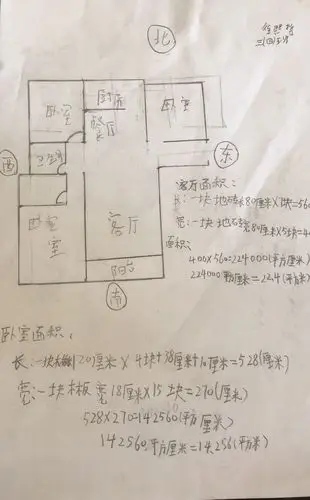 北
卧室
厨房
餐厅
卧室
卫生间
西
东
卧室
客厅
阳台
南
客厅面积：
长：一块地砖80厘米×7块=560
宽：一块地砖宽80厘米×5块=4
面积：
400×560=224000(平方厘米)
224000平方厘米=22.4(平方米)
卧室面积：
长：一块木板120厘米×4块+38厘米+10厘米=528(厘米)
宽：一块木板宽18厘米×15块=270(厘米)
528×270=142560(平方厘米)
142560平方厘米=14.256(平方米)